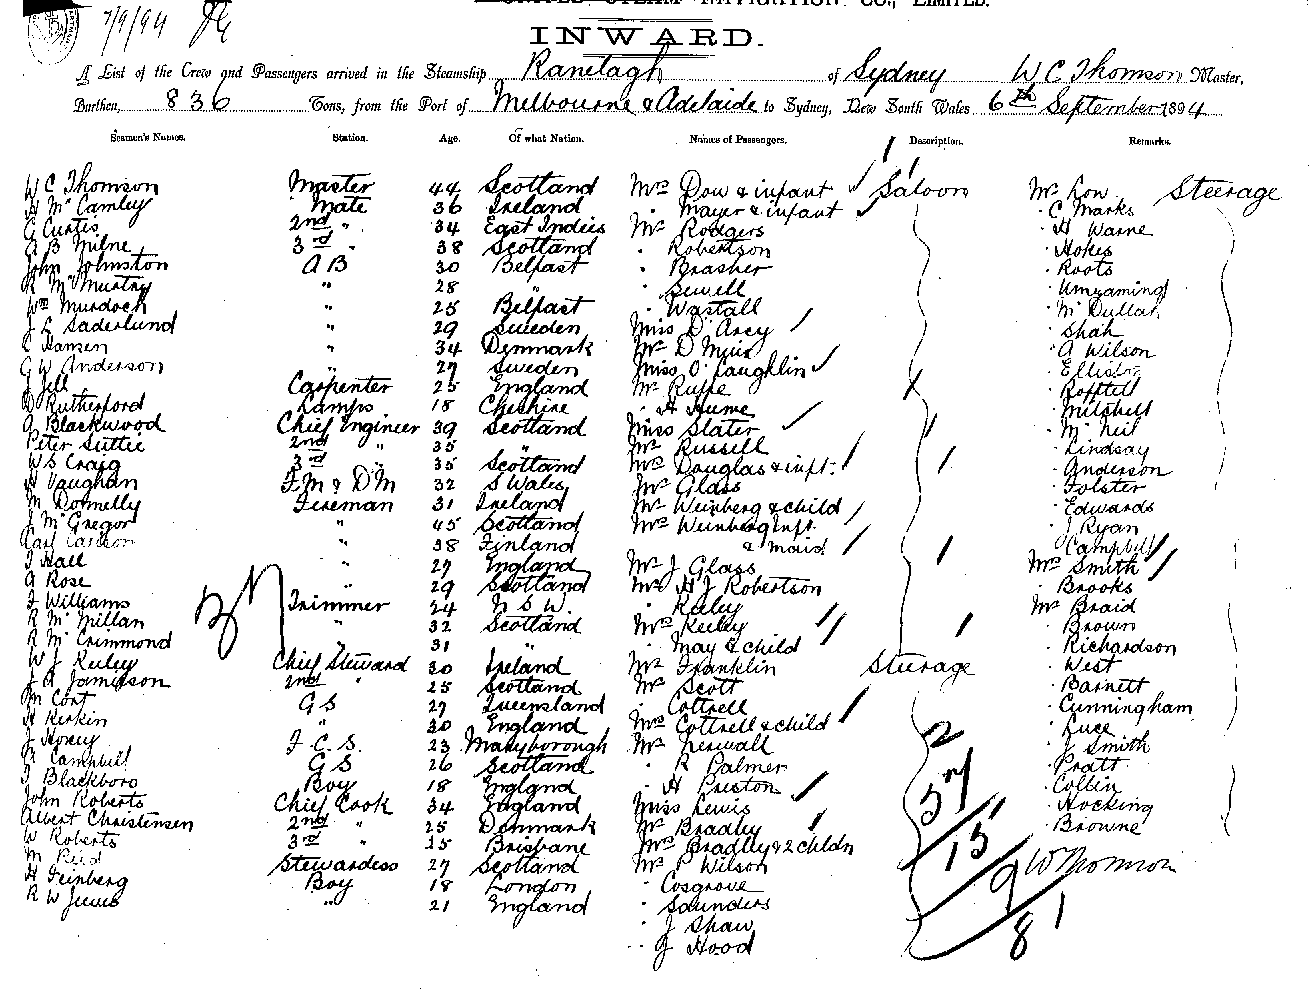 7/9/94
CO., LIMITED.
INWARD.
A List of the Crew and Passengers arrived in the Steamship Ranelagh of Sydney W C Thomson Master,
Burthen, 836 Tons, from the Port of Melbourne & Adelaide to Sydney, New South Wales 6th September 1894
Seamen's Names. Station. Age. Of what Nation. Names of Passengers. Description. Remarks.
W C Thomson Master 44 Scotland Mrs Dow & infant Saloon Mr Low Steerage
H McCamley Mate 36 Ireland " Mayer & infant " C Marks
C Curtis 2nd " 34 East Indies Mr Rodgers " H Warne
A B Milne 3rd " 38 Scotland " Robertson " Hokes
John Johnston A B 30 Belfast " Brasher " Roots
R McMurtry " 28 " " Sewell
Wm Murdoch " 25 Belfast " Wastall
J L Saderlund " 29 Sweden Miss D'Arcy " Shah
C Hansen " 34 Denmark Mr D Muir " A Wilson
G W Anderson " 27 Sweden Miss O'Laughlin
J Jell Carpenter 25 England Mr Rupe
D Rutherford Lamps 18 Cheshire " H Hume " Mitchell
A Blackwood Chief Engineer 39 Scotland Miss Slater " McNeil
Peter Suttie 2nd " 35 " Mr Russell " Lindsay
W S Craig 3rd " 35 Scotland Mrs Douglas & inft. " Anderson
H Vaughan F M & D M 32 S Wales Mr Glass " Folster
M Donnelly Fireman 31 Ireland Mr Weinberg & child " Edwards
J McGregor " 45 Scotland Mrs Weinberg Inft. " J Ryan
" 38 Finland & maid " Campbell
J Hall " 27 England Mr J Glass Mrs Smith
A Rose " 29 Scotland Mr H J Robertson " Brooks
J Williams Trimmer 24 N S W. " Keiley Mr Braid
R McMillan " 32 Scotland Mrs Keiley " Brown
R McCrimmond " 31 " " May & child " Richardson
W J Keiley Chief Steward 30 Ireland Mr Franklin Steerage " West
J R Jamieson 2nd " 25 Scotland Mr Scott " Barnett
M Cort G S 27 Queensland " Cottrell " Cunningham
H Kerkin " 30 England Mrs Cottrell & child " Luce
J Hoxey F. C. S. 23 Maryborough Mr " J Smith
Campbell G S 26 Scotland " R Palmer " Pratt
J Blackboro Boy 18 England " H Preston " Collin
John Roberts Chief Cook 34 England Miss Lewis " Hocking
Albert Christensen 2nd " 25 Denmark Mr Bradley " Browne
W Roberts 3rd " 25 Brisbane Mrs Bradley & 2 childn
M Reid Stewardess 27 Scotland Mr P Wilson W Thomson
H Feinberg Boy 18 London " Cosgrove
R W " 21 England " Saunders
" J Shaw
" J Hood
37
2
57
15
9
81